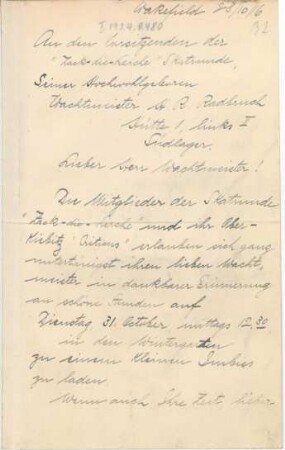 Wakefield 28/10/16
I 1924.8480
32
An den Vorsitzenden der
"Zack-die-Leiche" Skatrunde,
Seiner Hochwohlgeboren
Wachtmeister d. R. Radbruch
Hütte 1, links II
Südlager.
Lieber Herr Wachtmeister!
Die Mitglieder der Skatrunde
"Zack-die-Leiche" und ihr Ober-
Kiebitz erlauben sich ganz
untertänigst ihren lieben Wacht-
meister in dankbarer Erinnerung
an schöne Stunden auf
Dienstag, 31. October, mittags 12.30,
in den Wintergarten
zu einem kleinen Imbiss
zu laden.
Wenn auch Ihre Zeit, lieber